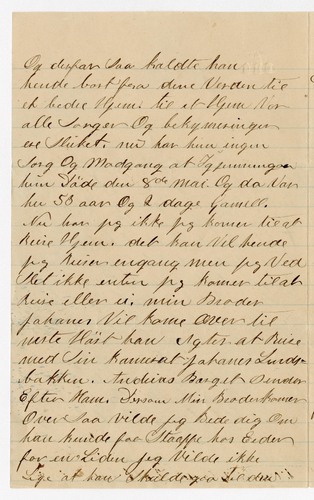 Og derfor saa kaldte han
hende bort fra dene Verden til
et bedre Hjem til et Hjem Vor
alle Sorger Og bekymringer
er Sluket. nu har hun ingen
Sorg Og Madgang at Igjennemgaa
hun Döde den 8de Mai. Og da Var
hu 50 aar Og 2 dage gamell.
Nu har jeg ikke jeg komer til at
Reise Hjem. det kan Vel hende
jeg Reiser engang men jeg Ved
Slet ikke enten jeg komer til at
Reise eller ei. min Broder
Johanes Vil kome over til
neste Höst han Agter at Reise
med Sin kamerat Johanes Linds-
bakken. Andreas Berget Sender
Efter Ham. Dersom Min Broder komer
Over Saa Vilde jeg Bede dig Om
han kunde faa Stoppe hos Eder
for en Liden jeg Vilde ikke
Lige at han Skulde gaa